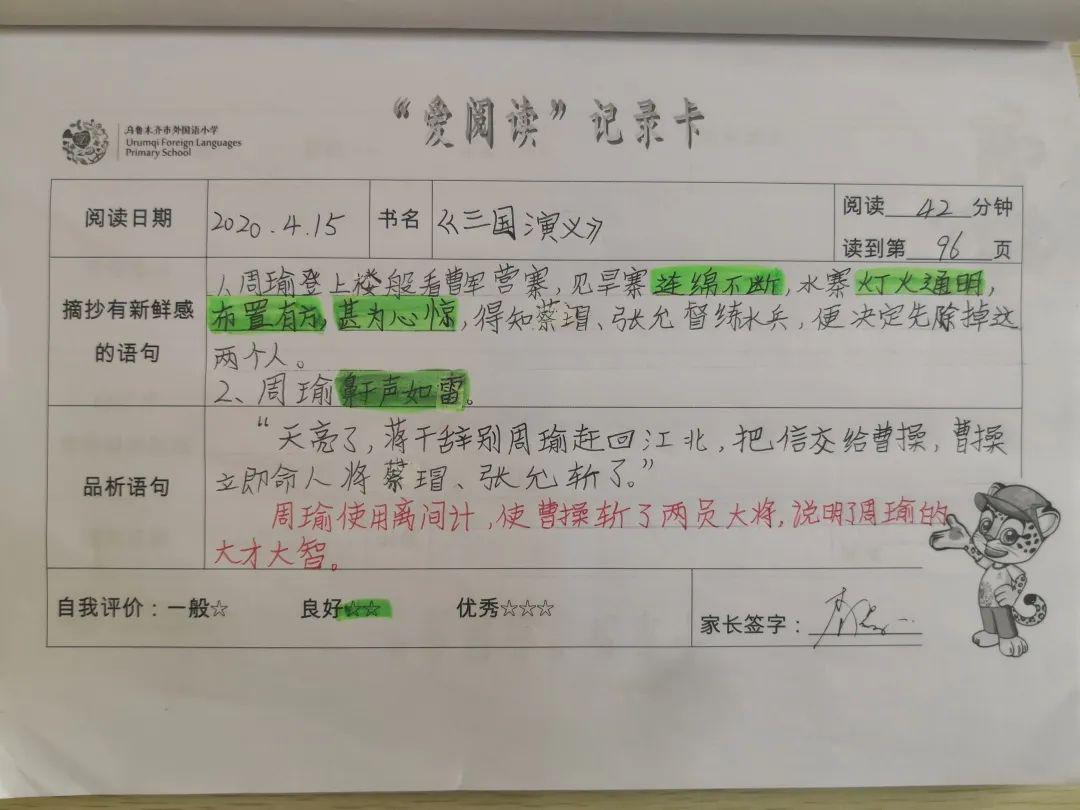 “爱阅读”记录卡
乌鲁木齐市外国语小学
Urumqi Foreign Languages
Primary School
阅读日期 2020.4.15 书名 《三国演义》 阅读 42 分钟
读到第 96 页
摘抄有新鲜感的语句
1、周瑜登上楼般看曹军营寨,见旱寨连绵不断,水寨灯火通明,
布置有方,甚为心惊,得知蔡瑁、张允督练水兵,便决定先除掉这
两个人。
2、周瑜鼾声如雷。
品析语句
“天亮了,蒋干辞别周瑜赶回江北,把信交给曹操,曹操
立即命人将蔡瑁、张允斩了。”
周瑜使用离间计,使曹操斩了两员大将,说明了周瑜的
大才大智。
自我评价:一般☆ 良好☆☆ 优秀☆☆☆ 家长签字: